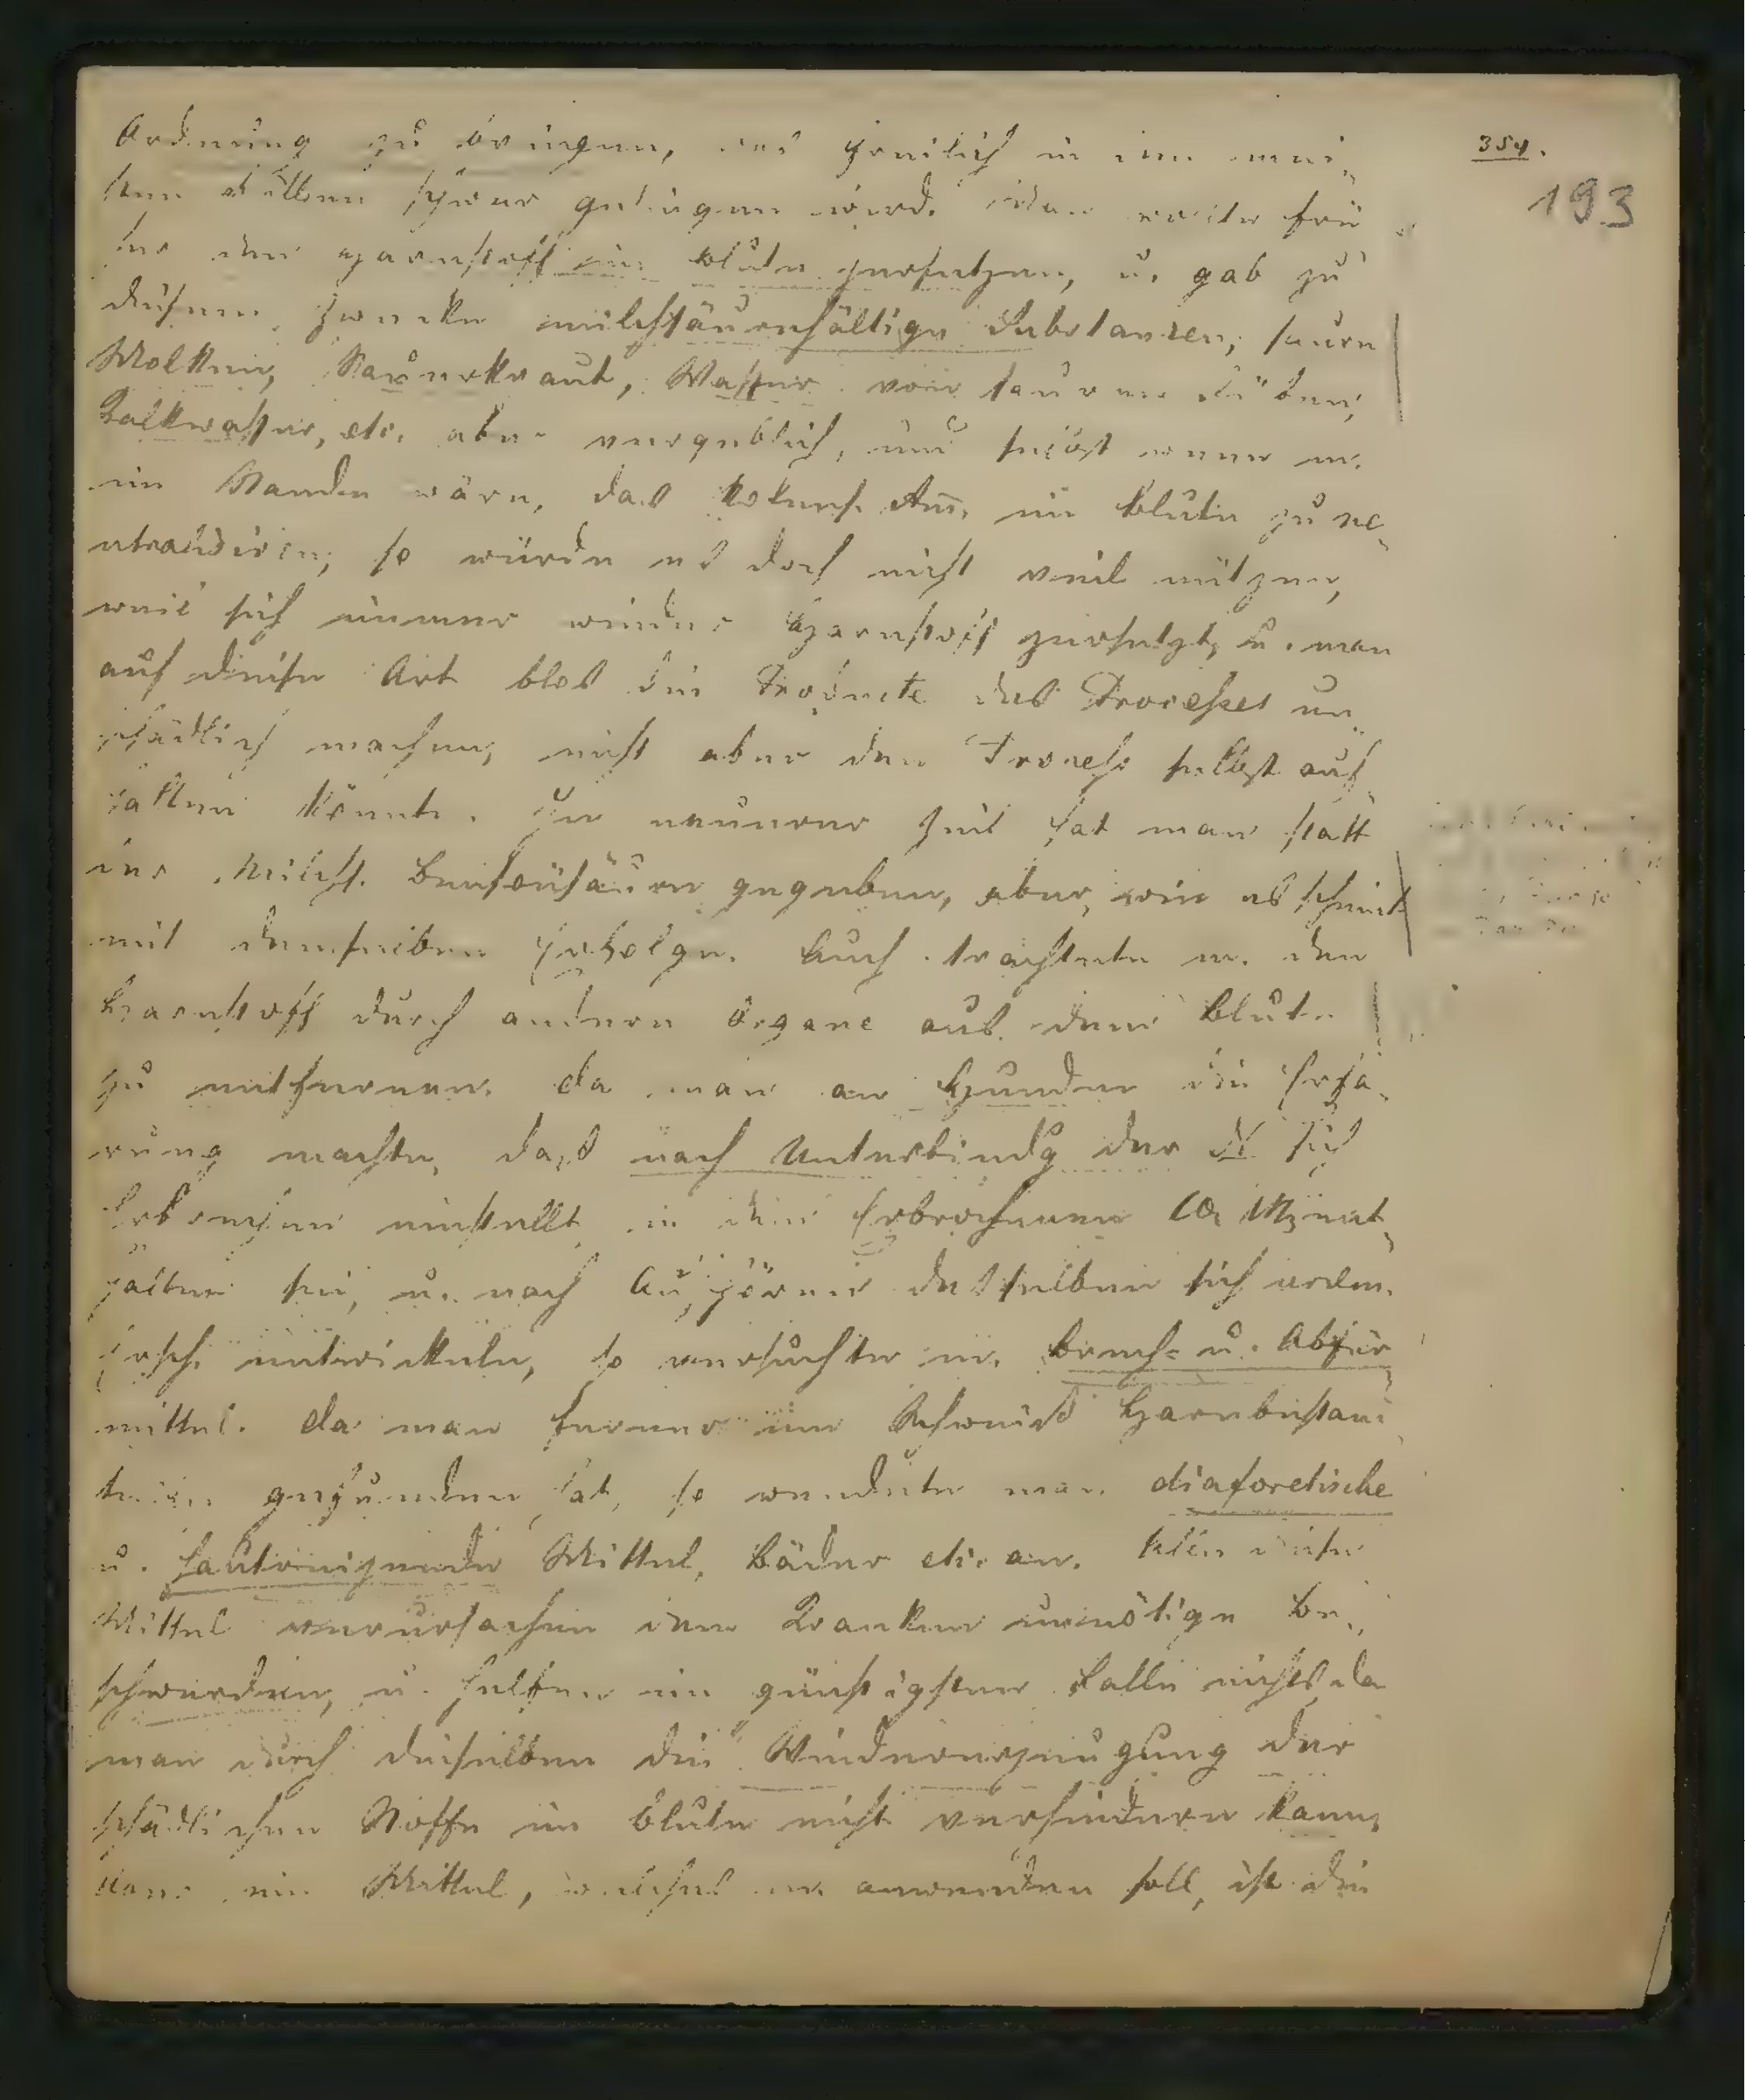 354.
193
Ordnung zu bringen, was freilich in den mei-
sten Fällen schwer gelingen wird. Man wollte frü
her den Harnstoff im Blute zersetzen, u. gab zu
diesem Zwecke milchsäurehältige Substanzen, saure
Molken, Sauerkraut, Wasser von sauren Rüben,
Kalkwasser, etc. aber vergeblich, und selbst wenn m.
im Stande wäre, das kolens. Am. im Blute zu ne-
utralisiren, so würde es doch nicht viel nützen,
weil sich immer wieder Harnstoff zersetzt, u. man
auf diese Art blos die Producte des Processes un-
schädlich machen, nicht aber den Process selbst auf-
halten könnte. In neuerer Zeit hat man statt
der Milchs. Benzoesäure gegeben, aber, wie es scheint
mit demselben Erfolge. Auch trachtete m. den
Harnstoff durch andere Organe aus dem Blute
zu entfernen. Da man an Hunden die Erfa-
rung machte, dass nach Unterbindg der N sich
Erbrechen einstellt, in dem Erbrochenen ent-
halten sei, u. nach Aufhören desselben sich urem.
Ersch. entwickeln, so versuchte m. Brech- u. Abfür-
mittel. Da man ferner im Schweisse Harnbestand-
teile gefunden hat, so wendete man diaforetische
u. hautreizende Mittel, Bäder etc. an. Alle diese
Mittel verursachen dem Kranken unnötige Be-
schwerden, u. helfen im günstigsten Falle nichts, da
man durch dieselben die Wiedererzeugung der
schädlichen Stoffe im Blute nicht verhindern kann.
ein Mittel, welches m. anwenden soll, ist die